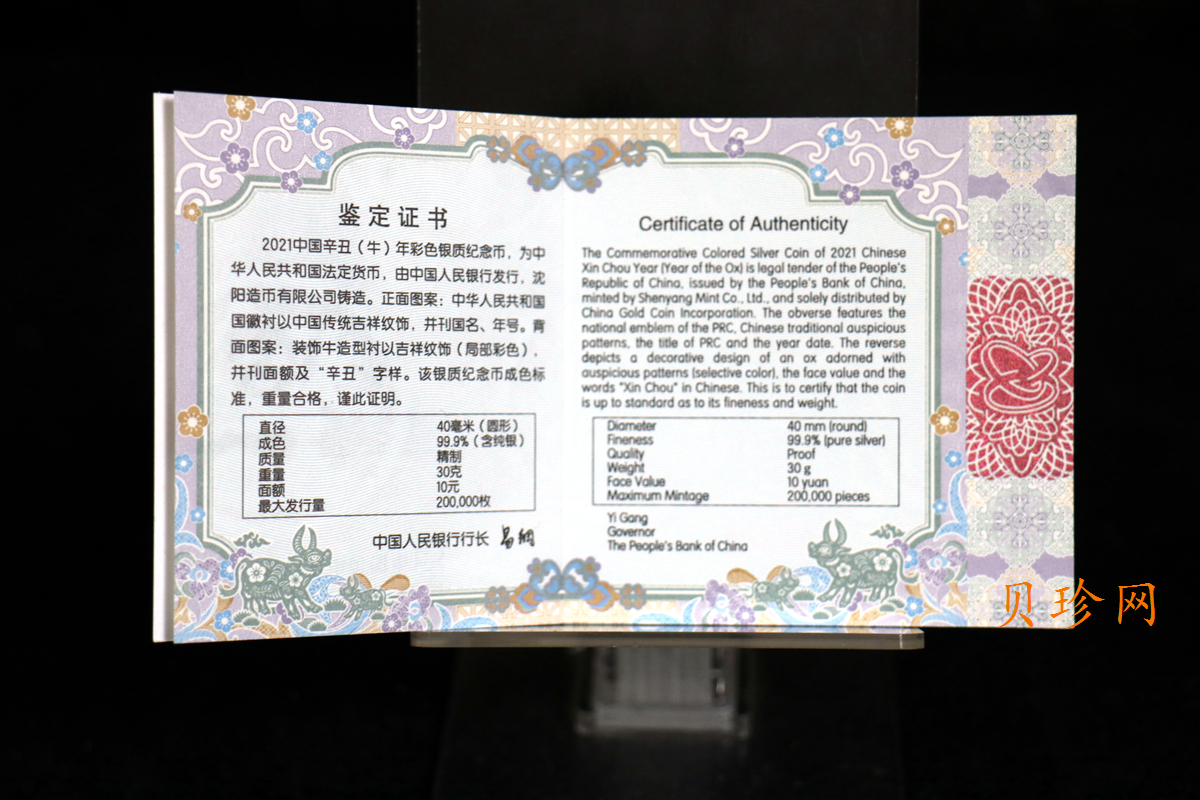 鉴定证书
2021中国辛丑（牛）年彩色银质纪念币，为中
华人民共和国法定货币，由中国人民银行发行，沈
阳造币有限公司铸造。正面图案：中华人民共和国
国徽衬以中国传统吉祥纹饰，并刊国名、年号。背
面图案：装饰牛造型衬以吉祥纹饰（局部彩色），
并刊面额及“辛丑”字样。该银质纪念币成色标
准，重量合格，谨此证明。
直径 40毫米（圆形）
成色 99.9%（含纯银）
质量 精制
重量 30克
面额 10元
最大发行量 200,000枚
中国人民银行行长 易纲
Certificate of Authenticity
The Commemorative Colored Silver Coin of 2021 Chinese
Xin Chou Year (Year of the Ox) is legal tender of the People's
Republic of China, issued by the People's Bank of China,
minted by Shenyang Mint Co., Ltd., and solely distributed by
China Gold Coin Incorporation. The obverse features the
national emblem of the PRC, Chinese traditional auspicious
patterns, the title of PRC and the year date. The reverse
depicts a decorative design of an ox adorned with
auspicious patterns (selective color), the face value and the
words "Xin Chou" in Chinese. This is to certify that the coin
is up to standard as to its fineness and weight.
Diameter 40 mm (round)
Fineness 99.9% (pure silver)
Quality Proof
Weight 30 g
Face Value 10 yuan
Maximum Mintage 200,000 pieces
Yi Gang
Governor
The People's Bank of China
贝珍网